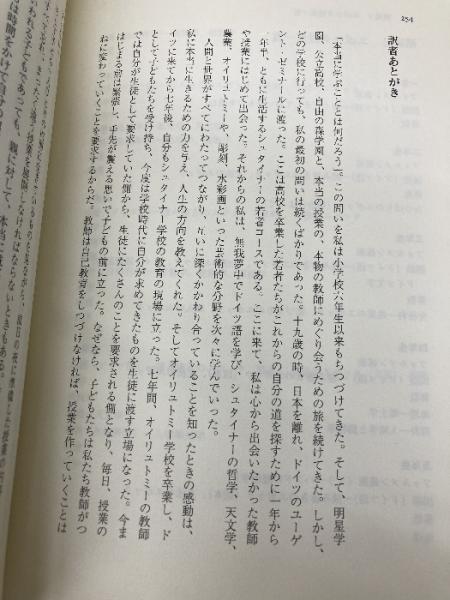 254
訳者あとがき
「本当に学ぶこととは何だろう」。この問いを私は小学校六年生以来もちつづけてきた。そして、明星学
園、公立高校、自由の森学園と、本当の授業の、本物の教師にめぐり会うための旅を続けてきた。しかし、
どの学校に行っても、私の最初の問いは続くばかりであった。十九歳の時、日本を離れ、ドイツのユーゲ
ント・ゼミナールに渡った。ここは高校を卒業した若者たちがこれからの自分の道を探すために一年から
二年半、ともに生活するシュタイナーの若者コースである。ここに来て、私は心から出会いたかった教師
や授業にはじめて出会った。それからの私は、無我夢中でドイツ語を学び、シュタイナーの哲学、天文学、
農業、オイリュトミーや、彫刻、水彩画といった芸術的な分野を次々に学んでいった。
人間と世界がすべてにわたってつながり、互いに深くかかわり合っていることを知ったときの感動は、
私に本当に生きるための力を与え、人生の方向を教えてくれた。そしてオイリュトミー学校を卒業し、ド
イツに来てから七年後、自分もシュタイナー学校の教育の現場に立った。七年間、オイリュトミーの教師
として子どもたちを受け持ち、今度は学校時代に自分が求めてきたものを生徒に渡す立場になった。今ま
では自分が生徒として要求していた側から、生徒にたくさんのことを要求される側となり、毎日、授業の
はじまる前は緊張し、手先が震える思いで子どもの前に立った。なぜなら、子どもたちは私たち教師がつ
ねに変わっていくことを要求するからだ。教師は自己教育をしつづけなければ、授業を作っていくことは
ながら、前日の夜に準備した授業の内容
まったく違う授業を展開しなければならないときもある。
子どもであっても、親に対して、本当に
は時間をかけて自分の